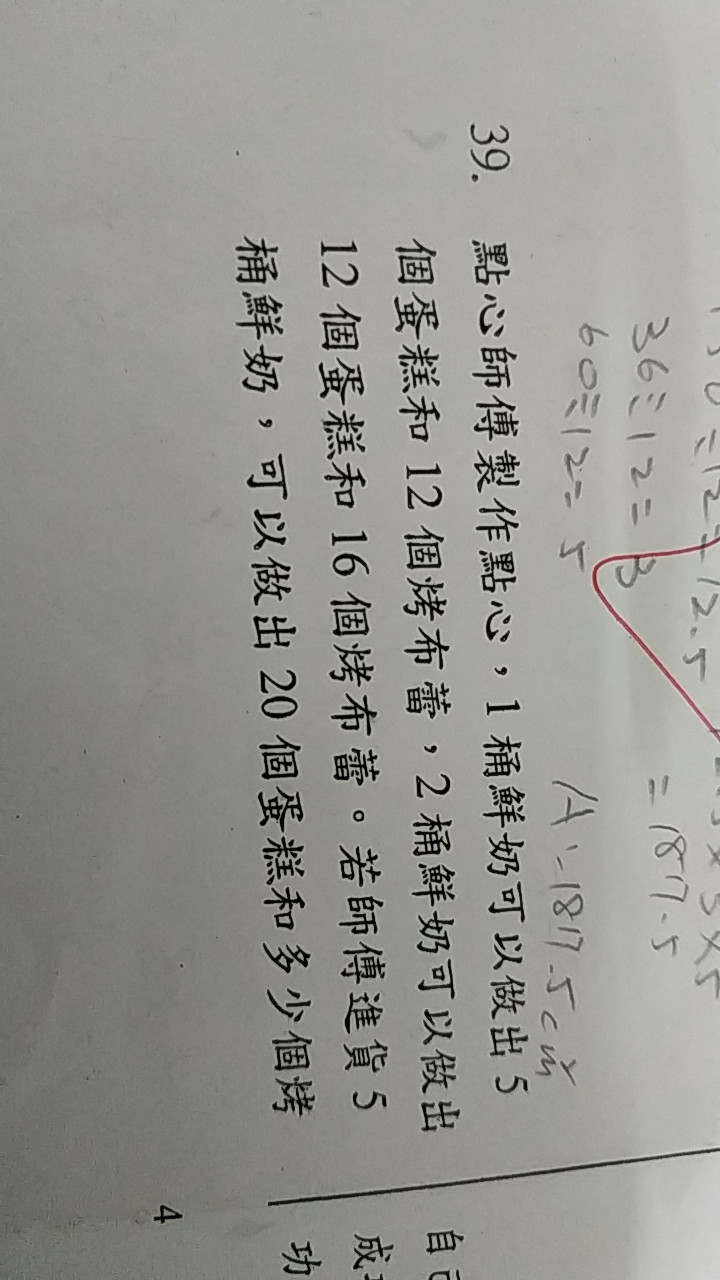 36÷12=3
60÷12=5
=187.5
A:187.5cm²
39. 點心師傅製作點心，1桶鮮奶可以做出5
個蛋糕和12個烤布蕾，2桶鮮奶可以做出
12個蛋糕和16個烤布蕾。若師傅進貨5
桶鮮奶，可以做出20個蛋糕和多少個烤
4